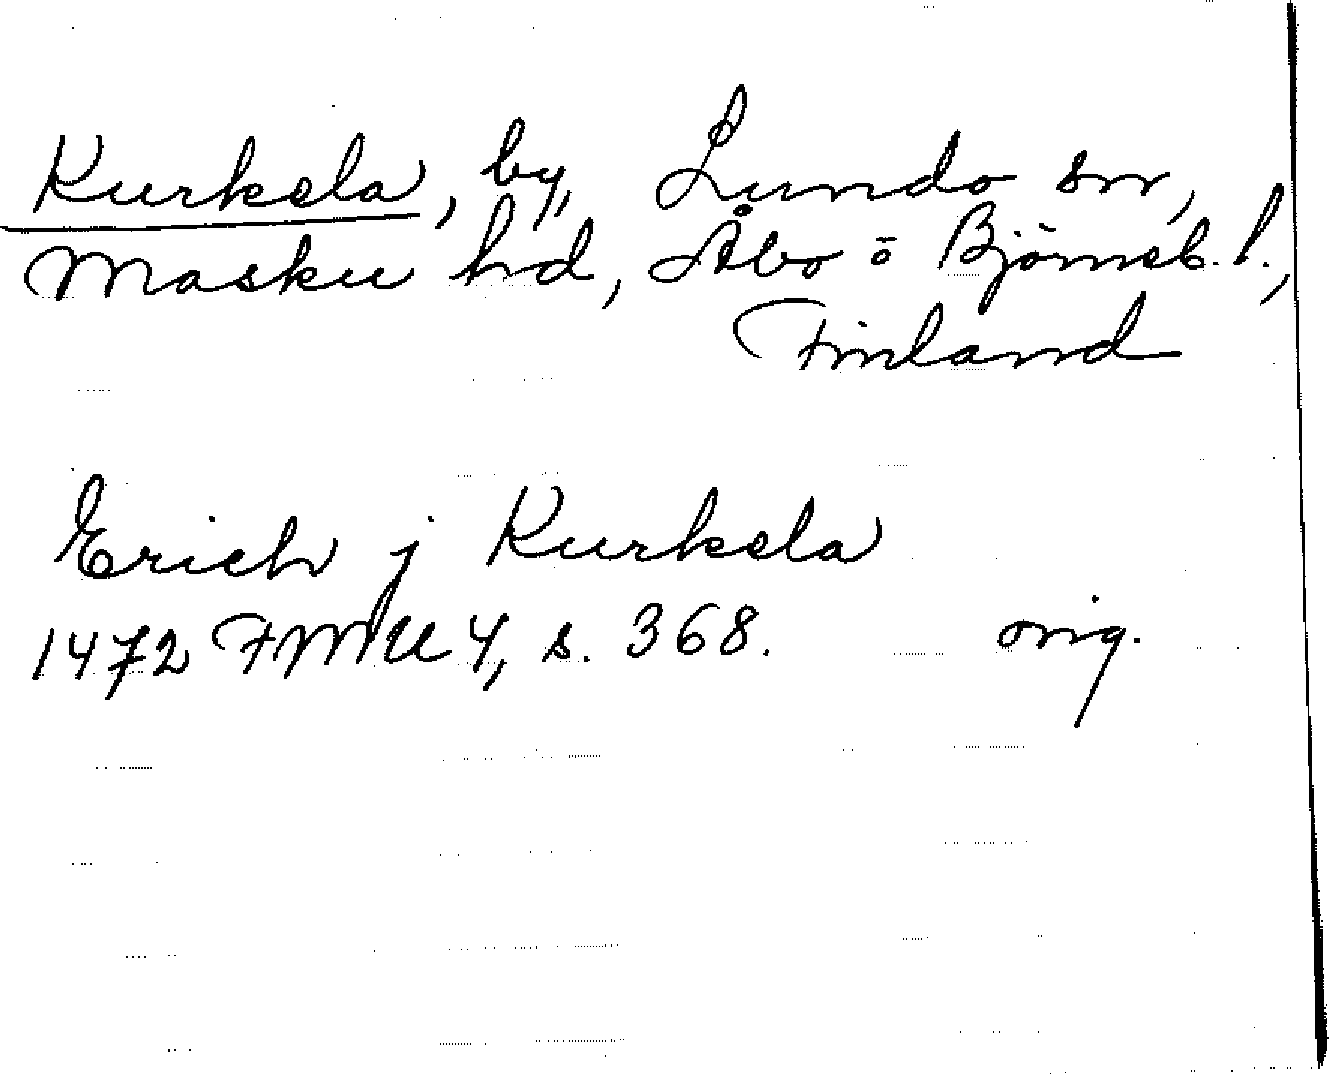 Kurkela, by, Lundo sn,
Masku hd, Åbo o Björneb. l.,
Finland
Erich j Kurkela
1472 FMU 4, s. 368. orig.